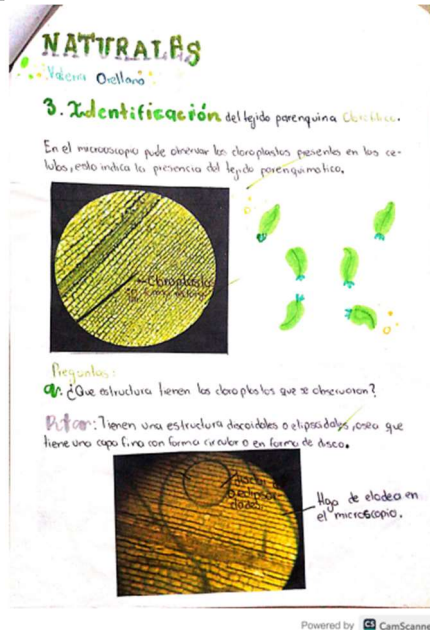 NATURALES
Valeria Orellana
3. Identificación del tejido parenquima
En el microscopio pude observar los cloroplastos presentes en las ce-
lulas, esto indica la presencia del tejido parenquimatico.
Cloroplastos
Preguntas:
a. ¿Que estructura tienen los cloroplastos que se observaron?
Rta: Tienen una estructura discoidales o elipsoidales, osea que
tiene una capa fina con forma circular o en forma de disco.
Hoja de elodea en
el microscopio.
Powered by CS CamScanne